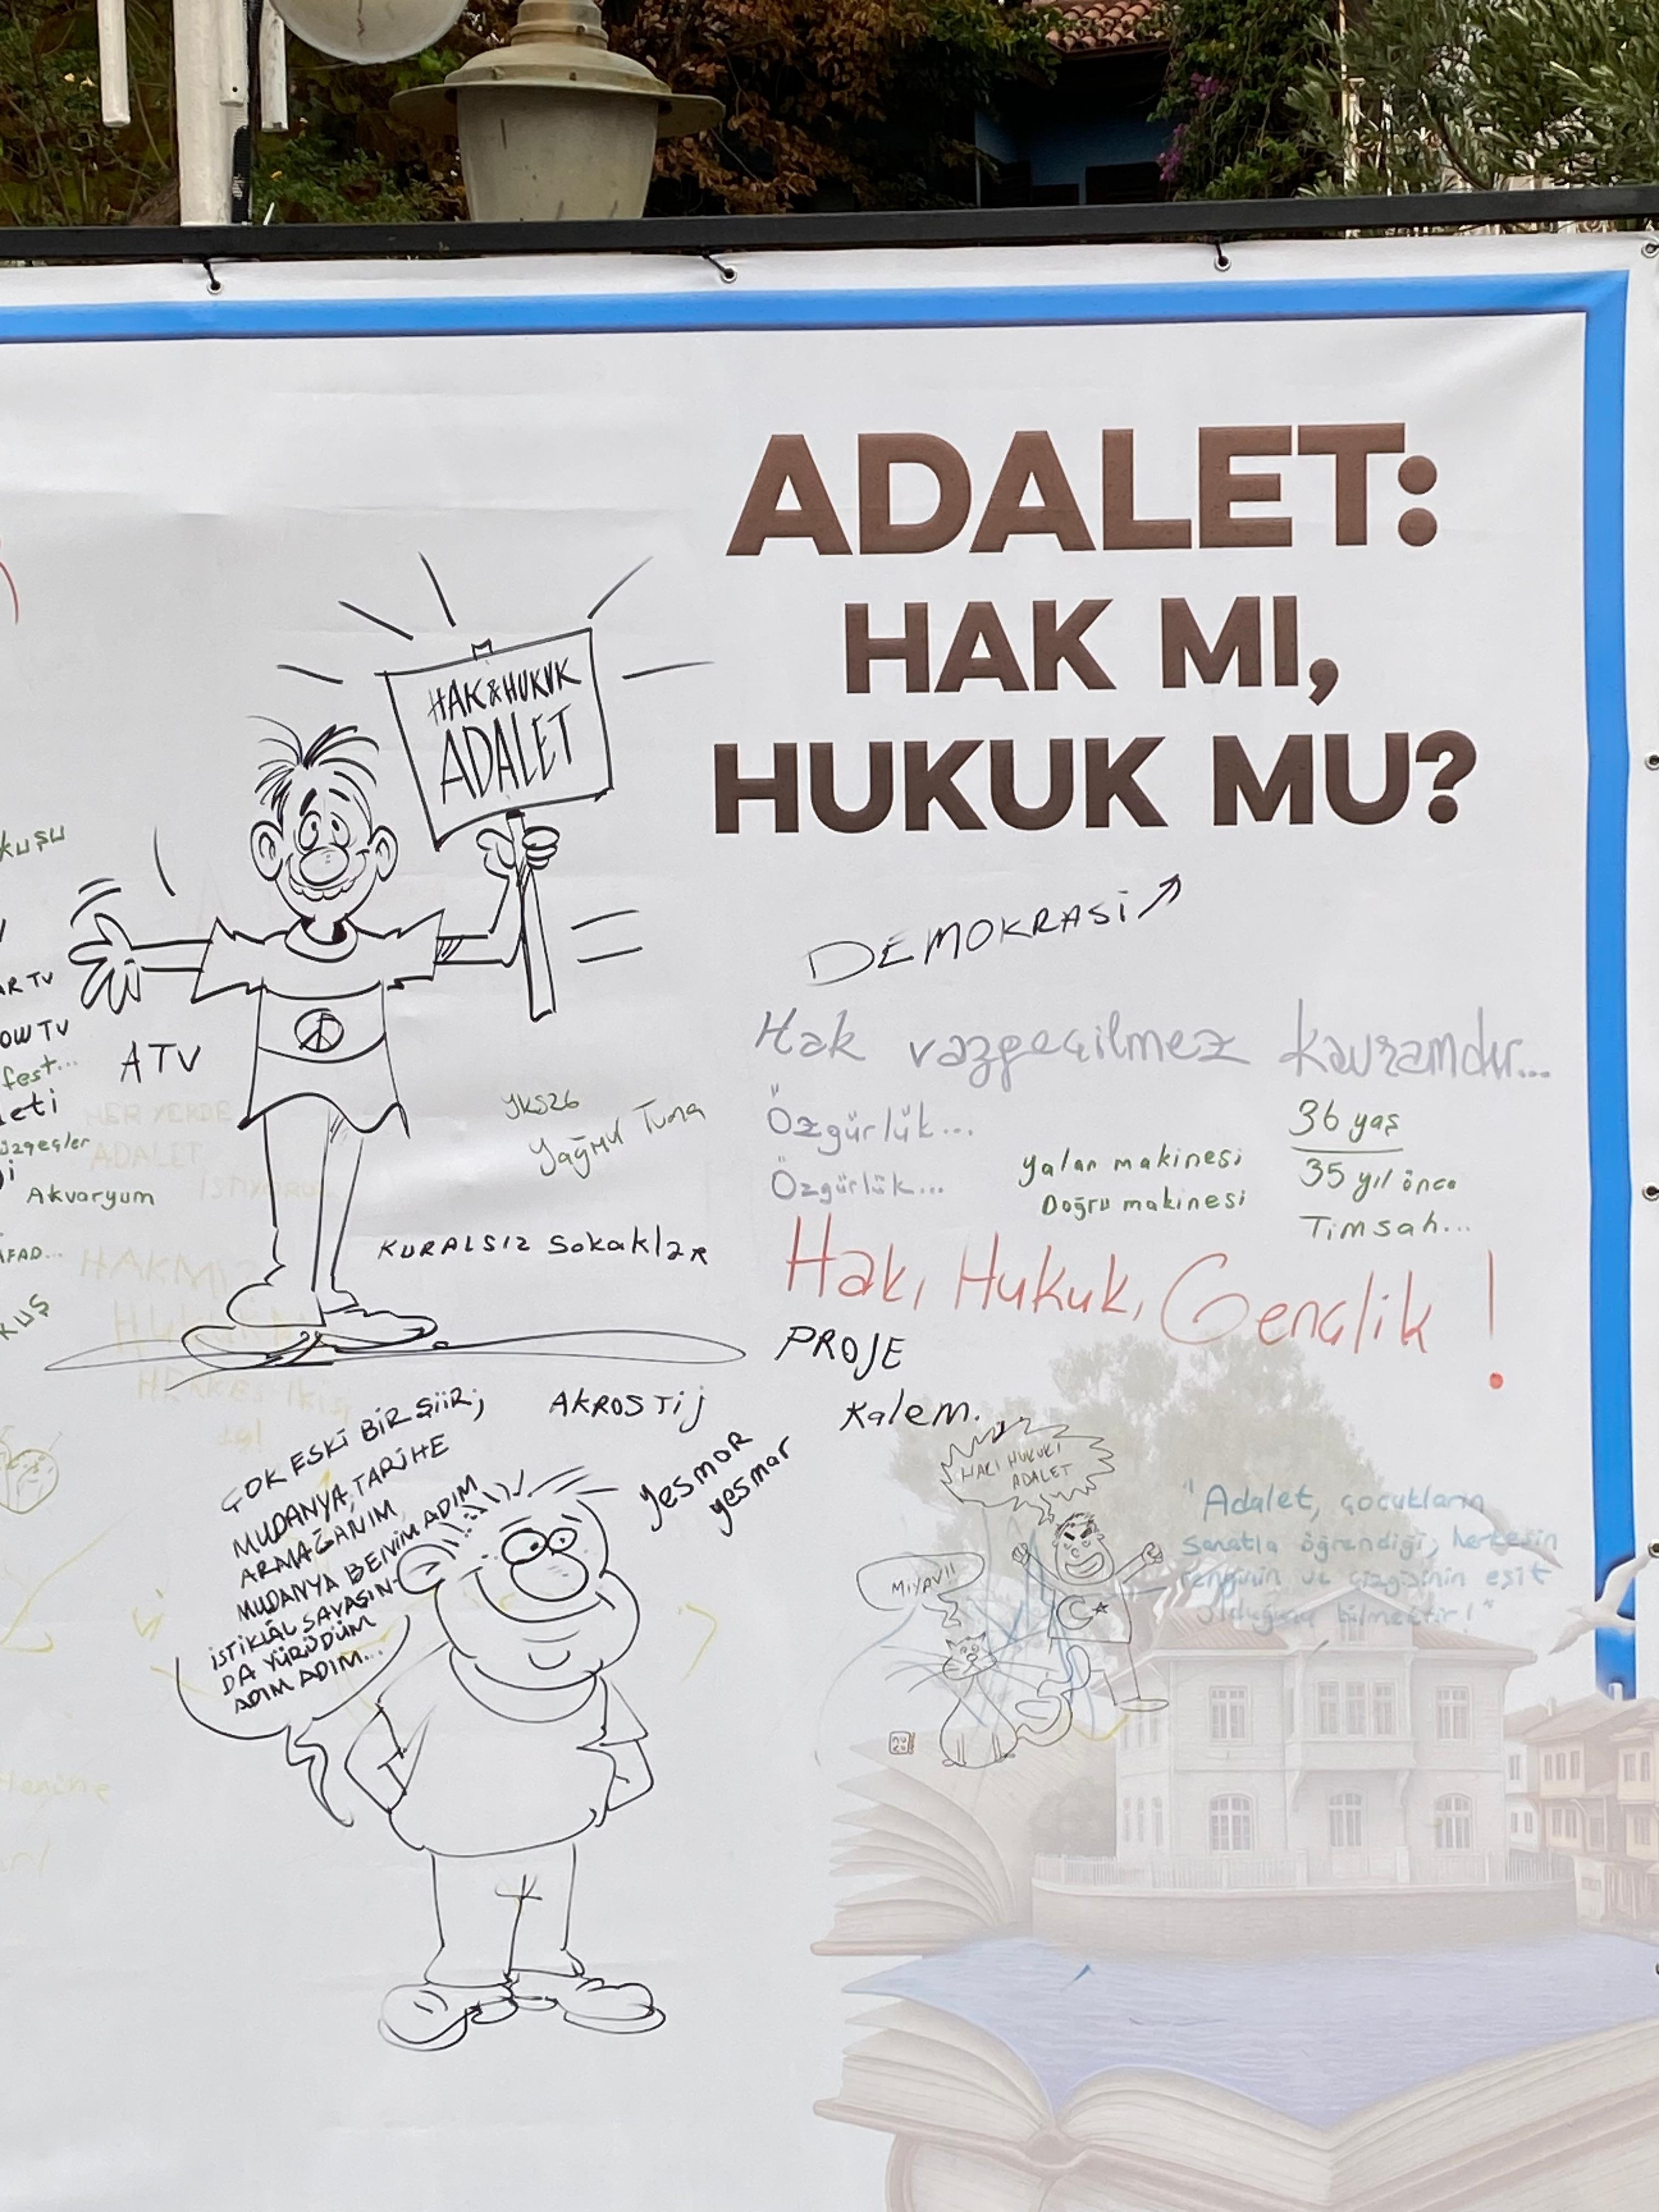 ADALET:
HAK MI,
HUKUK MU?
HAK & HUKUK
ADALET
DEMOKRASİ
Hak vazgeçilmez kavramdır...
Özgürlük...
Özgürlük...
36 yaş
35 yıl önce
Timsah...
Yalan makinesi
Doğru makinesi
Hak, Hukuk, Gençlik !
PROJE
Kalem.
kuşu
AR TV
OW TV
fest...
eti
Akvaryum
AFAD...
KUŞ
ATV
HER YERDE
ADALET
İSTİYORUZ
YKS26
Yağmur Tuna
KURALSIZ Sokaklar
AKROSTİJ
yesmor
yesmar
ÇOK ESKİ BİR ŞİİR;
MUDANYA, TARİHE
ARMAĞANIM
MUDANYA BENİM ADIM
İSTİKLÂL SAVAŞIN-
DA YÜRÜDÜM
ADIM ADIM...
HAK! HUKUK!
ADALET
MIYAV!!
"Adalet, çocukların
sanatla öğrendiği, herkesin
renginin ve çizgisinin eşit
olduğunu bilmektir!"